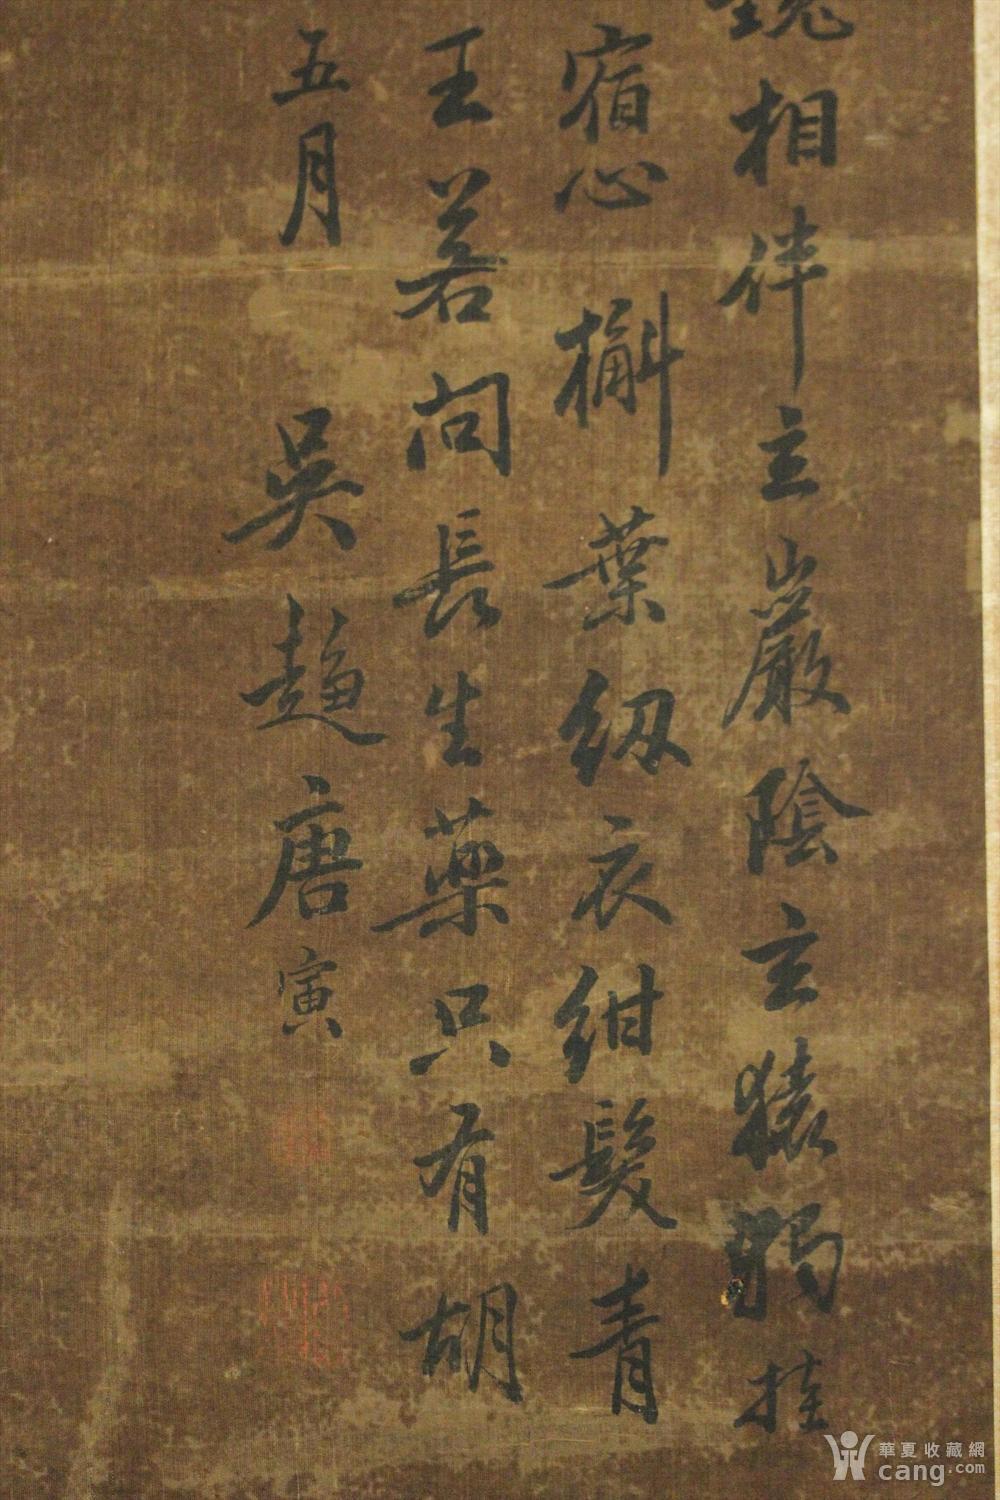 相伴立巖陰玄猿獨挂
宿心槲葉紉衣紺髮青
王若問長生藥只有胡
五月 吳趨唐寅
華夏收藏網
cang.com